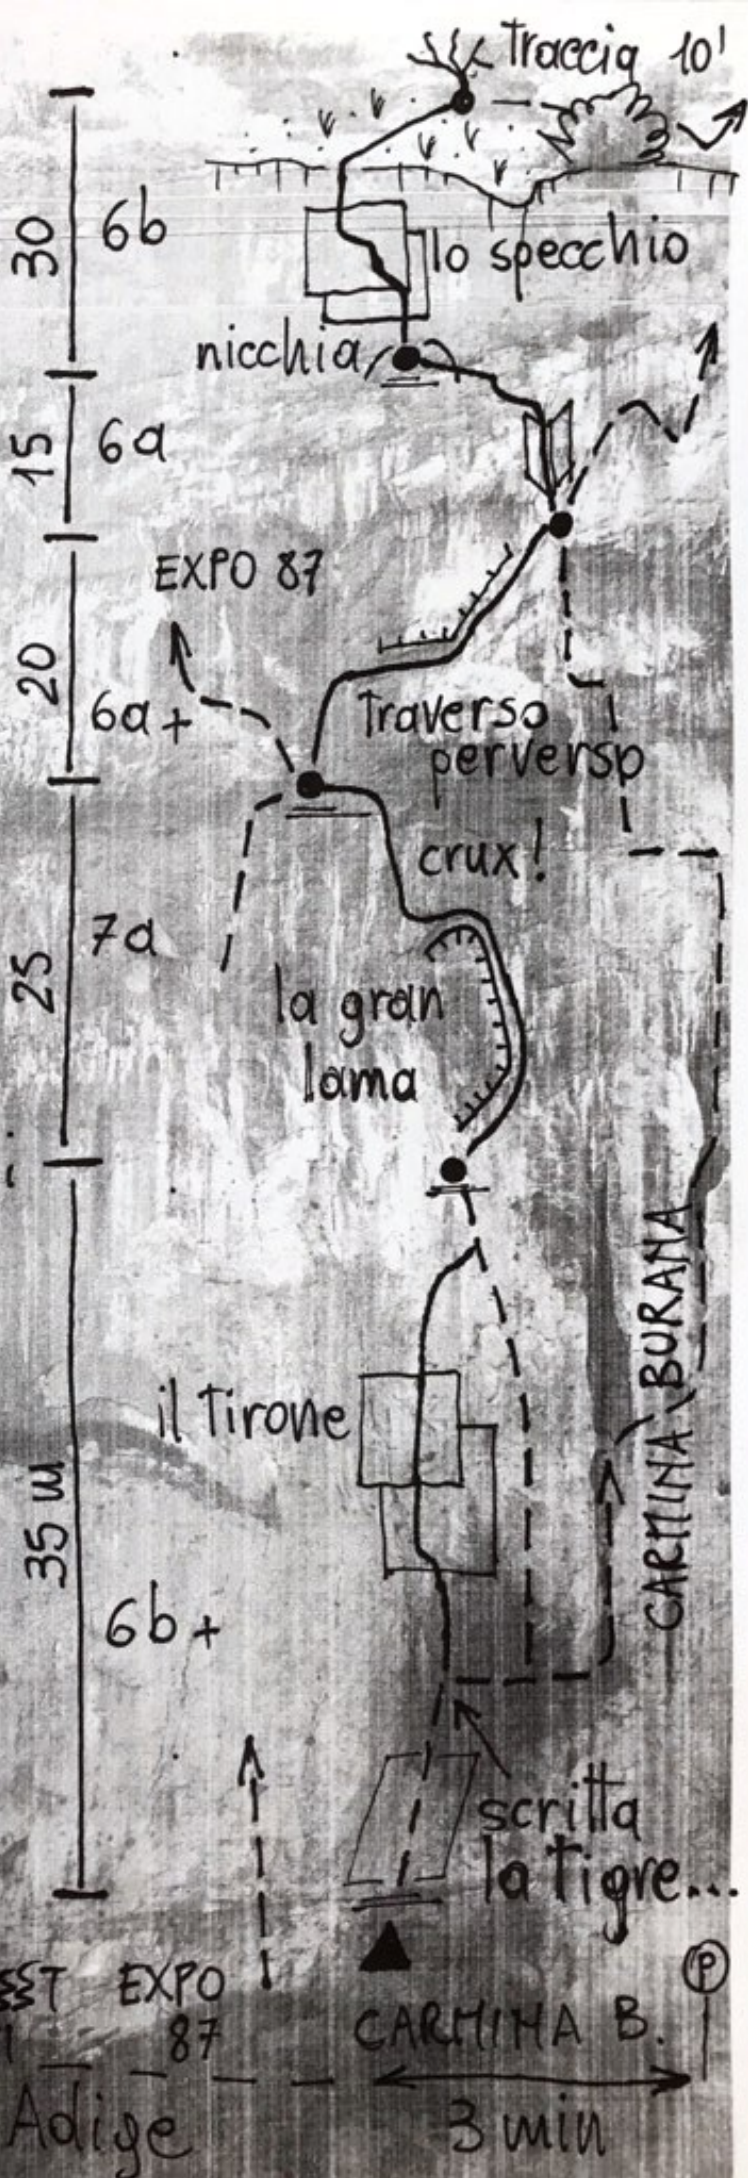 Traccia 10'
30
6b
lo specchio
nicchia
15
6a
EXPO 87
20
6a+
Traverso
perverso
crux!
25
7a
la gran
lama
CARMINA BURANA
il Tirone
35 m
6b+
scritta
la Tigre...
P
EXPO
87
CARMINA B.
Adige
3 min